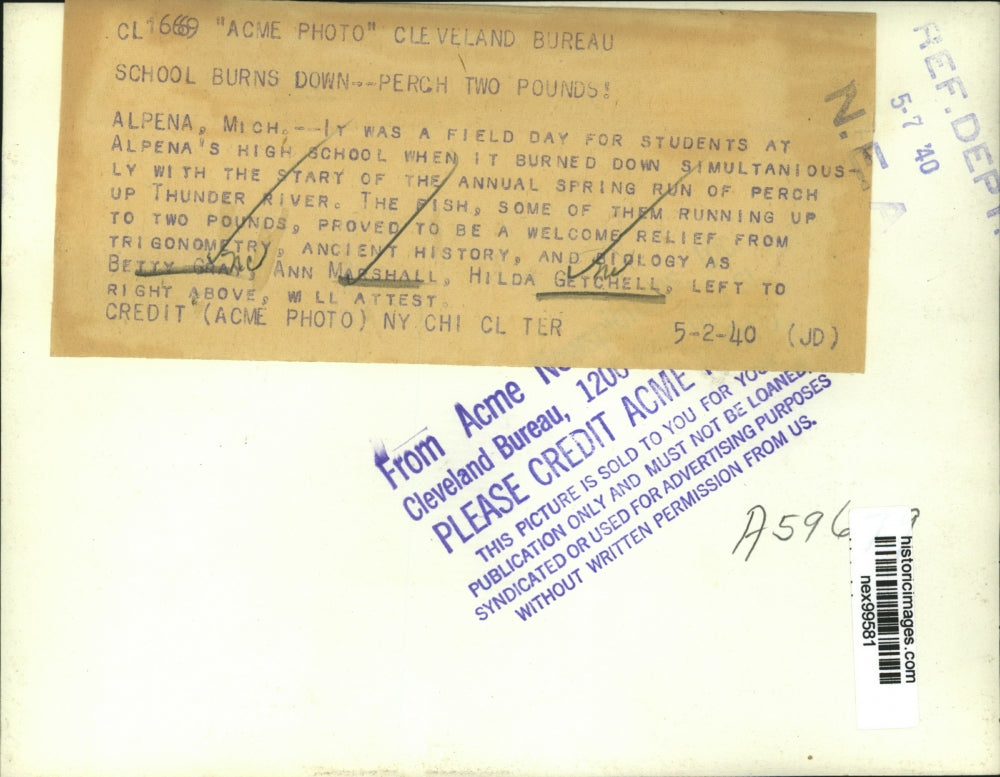 CL 1669 "ACME PHOTO" CLEVELAND BUREAU
SCHOOL BURNS DOWN--PERCH TWO POUNDS!
ALPENA, MICH.--IT WAS A FIELD DAY FOR STUDENTS AT
ALPENA'S HIGH SCHOOL WHEN IT BURNED DOWN SIMULTANIOUS-
LY WITH THE START OF THE ANNUAL SPRING RUN OF PERCH
UP THUNDER RIVER. THE FISH, SOME OF THEM RUNNING UP
TO TWO POUNDS, PROVED TO BE A WELCOME RELIEF FROM
TRIGONOMETRY, ANCIENT HISTORY, AND BIOLOGY AS
BETTY ANN MARSHALL, HILDA GETCHELL, LEFT TO
RIGHT ABOVE, WILL ATTEST.
CREDIT (ACME PHOTO) NY CHI CL TER 5-2-40 (JD)
REF. DEPT.
5-7 '40
N. E. A
From Acme
Cleveland Bureau, 1200
PLEASE CREDIT ACME
THIS PICTURE IS SOLD TO YOU FOR YOUR
PUBLICATION ONLY AND MUST NOT BE LOANED,
SYNDICATED OR USED FOR ADVERTISING PURPOSES
WITHOUT WRITTEN PERMISSION FROM US.
A596
historicimages.com
nex99581